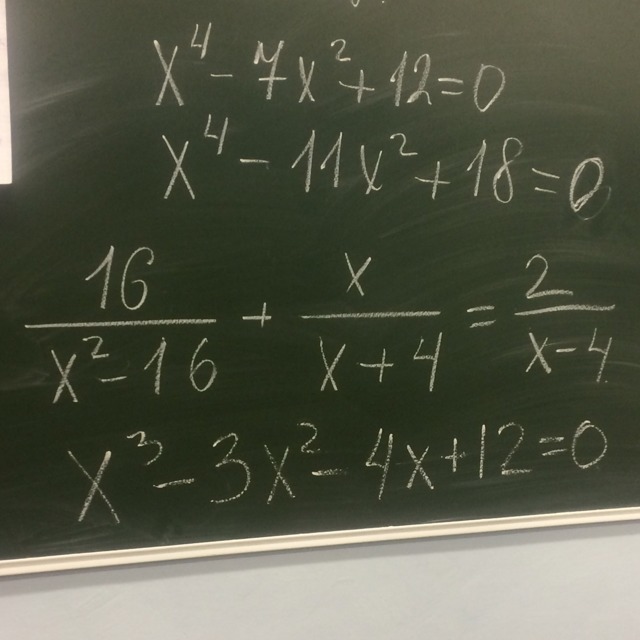 x⁴ - 7x² + 12 = 0
x⁴ - 11x² + 18 = 0
16/(x² - 16) + x/(x + 4) = 2/(x - 4)
x³ - 3x² - 4x + 12 = 0